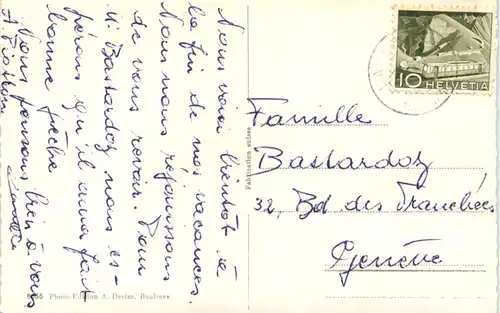 Nous voici bientôt à
la fin de nos vacances.
Nous nous réjouissons
de vous revoir. Pour
M. Bastardoz nous es-
pérons qu'il aura fait
bonne pêche
Nous pensons bien à vous
Famille
Bastardoz
32, Bd des Tranchées
Genève
10 HELVETIA
Fabrication suisse
Photo-Edition A. Deriaz, Baulmes